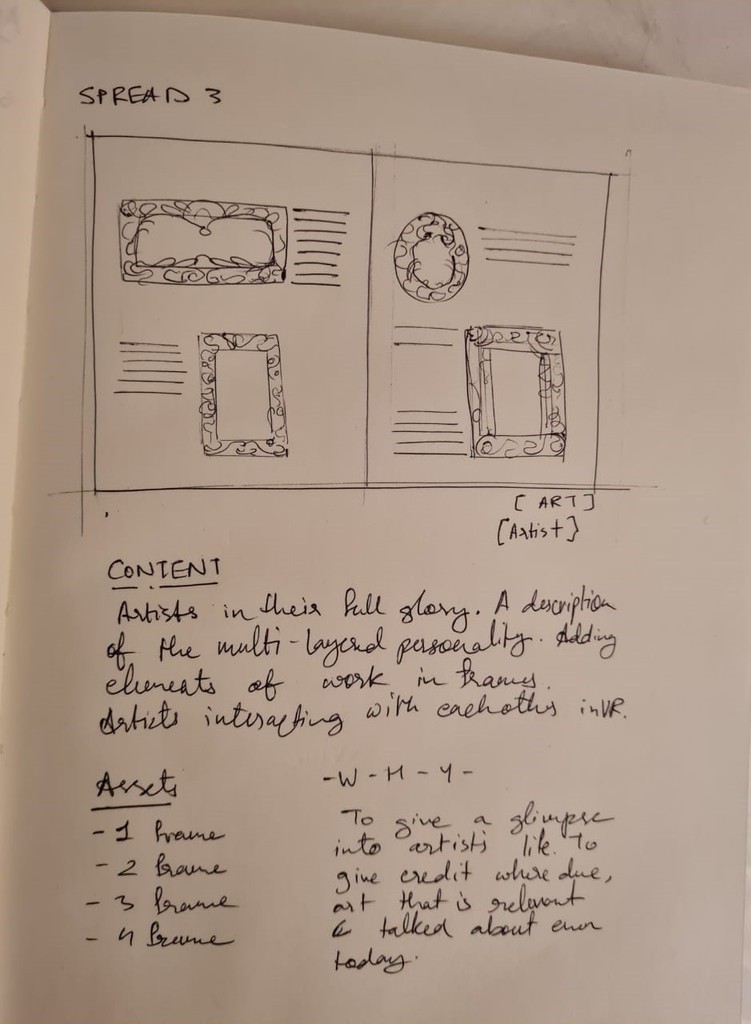 SPREAD 3
[ ART ]
[Artist}
CONTENT
Artists in their full glory. A description
of the multi-layered personality. Adding
elements of work in frames.
Artists interacting with eachothers in VR.
Assets
- 1 frame
- 2 frame
- 3 frame
- 4 frame
-W-H-Y-
To give a glimpse
into artists life. To
give credit where due,
art that is relevant
& talked about even
today.